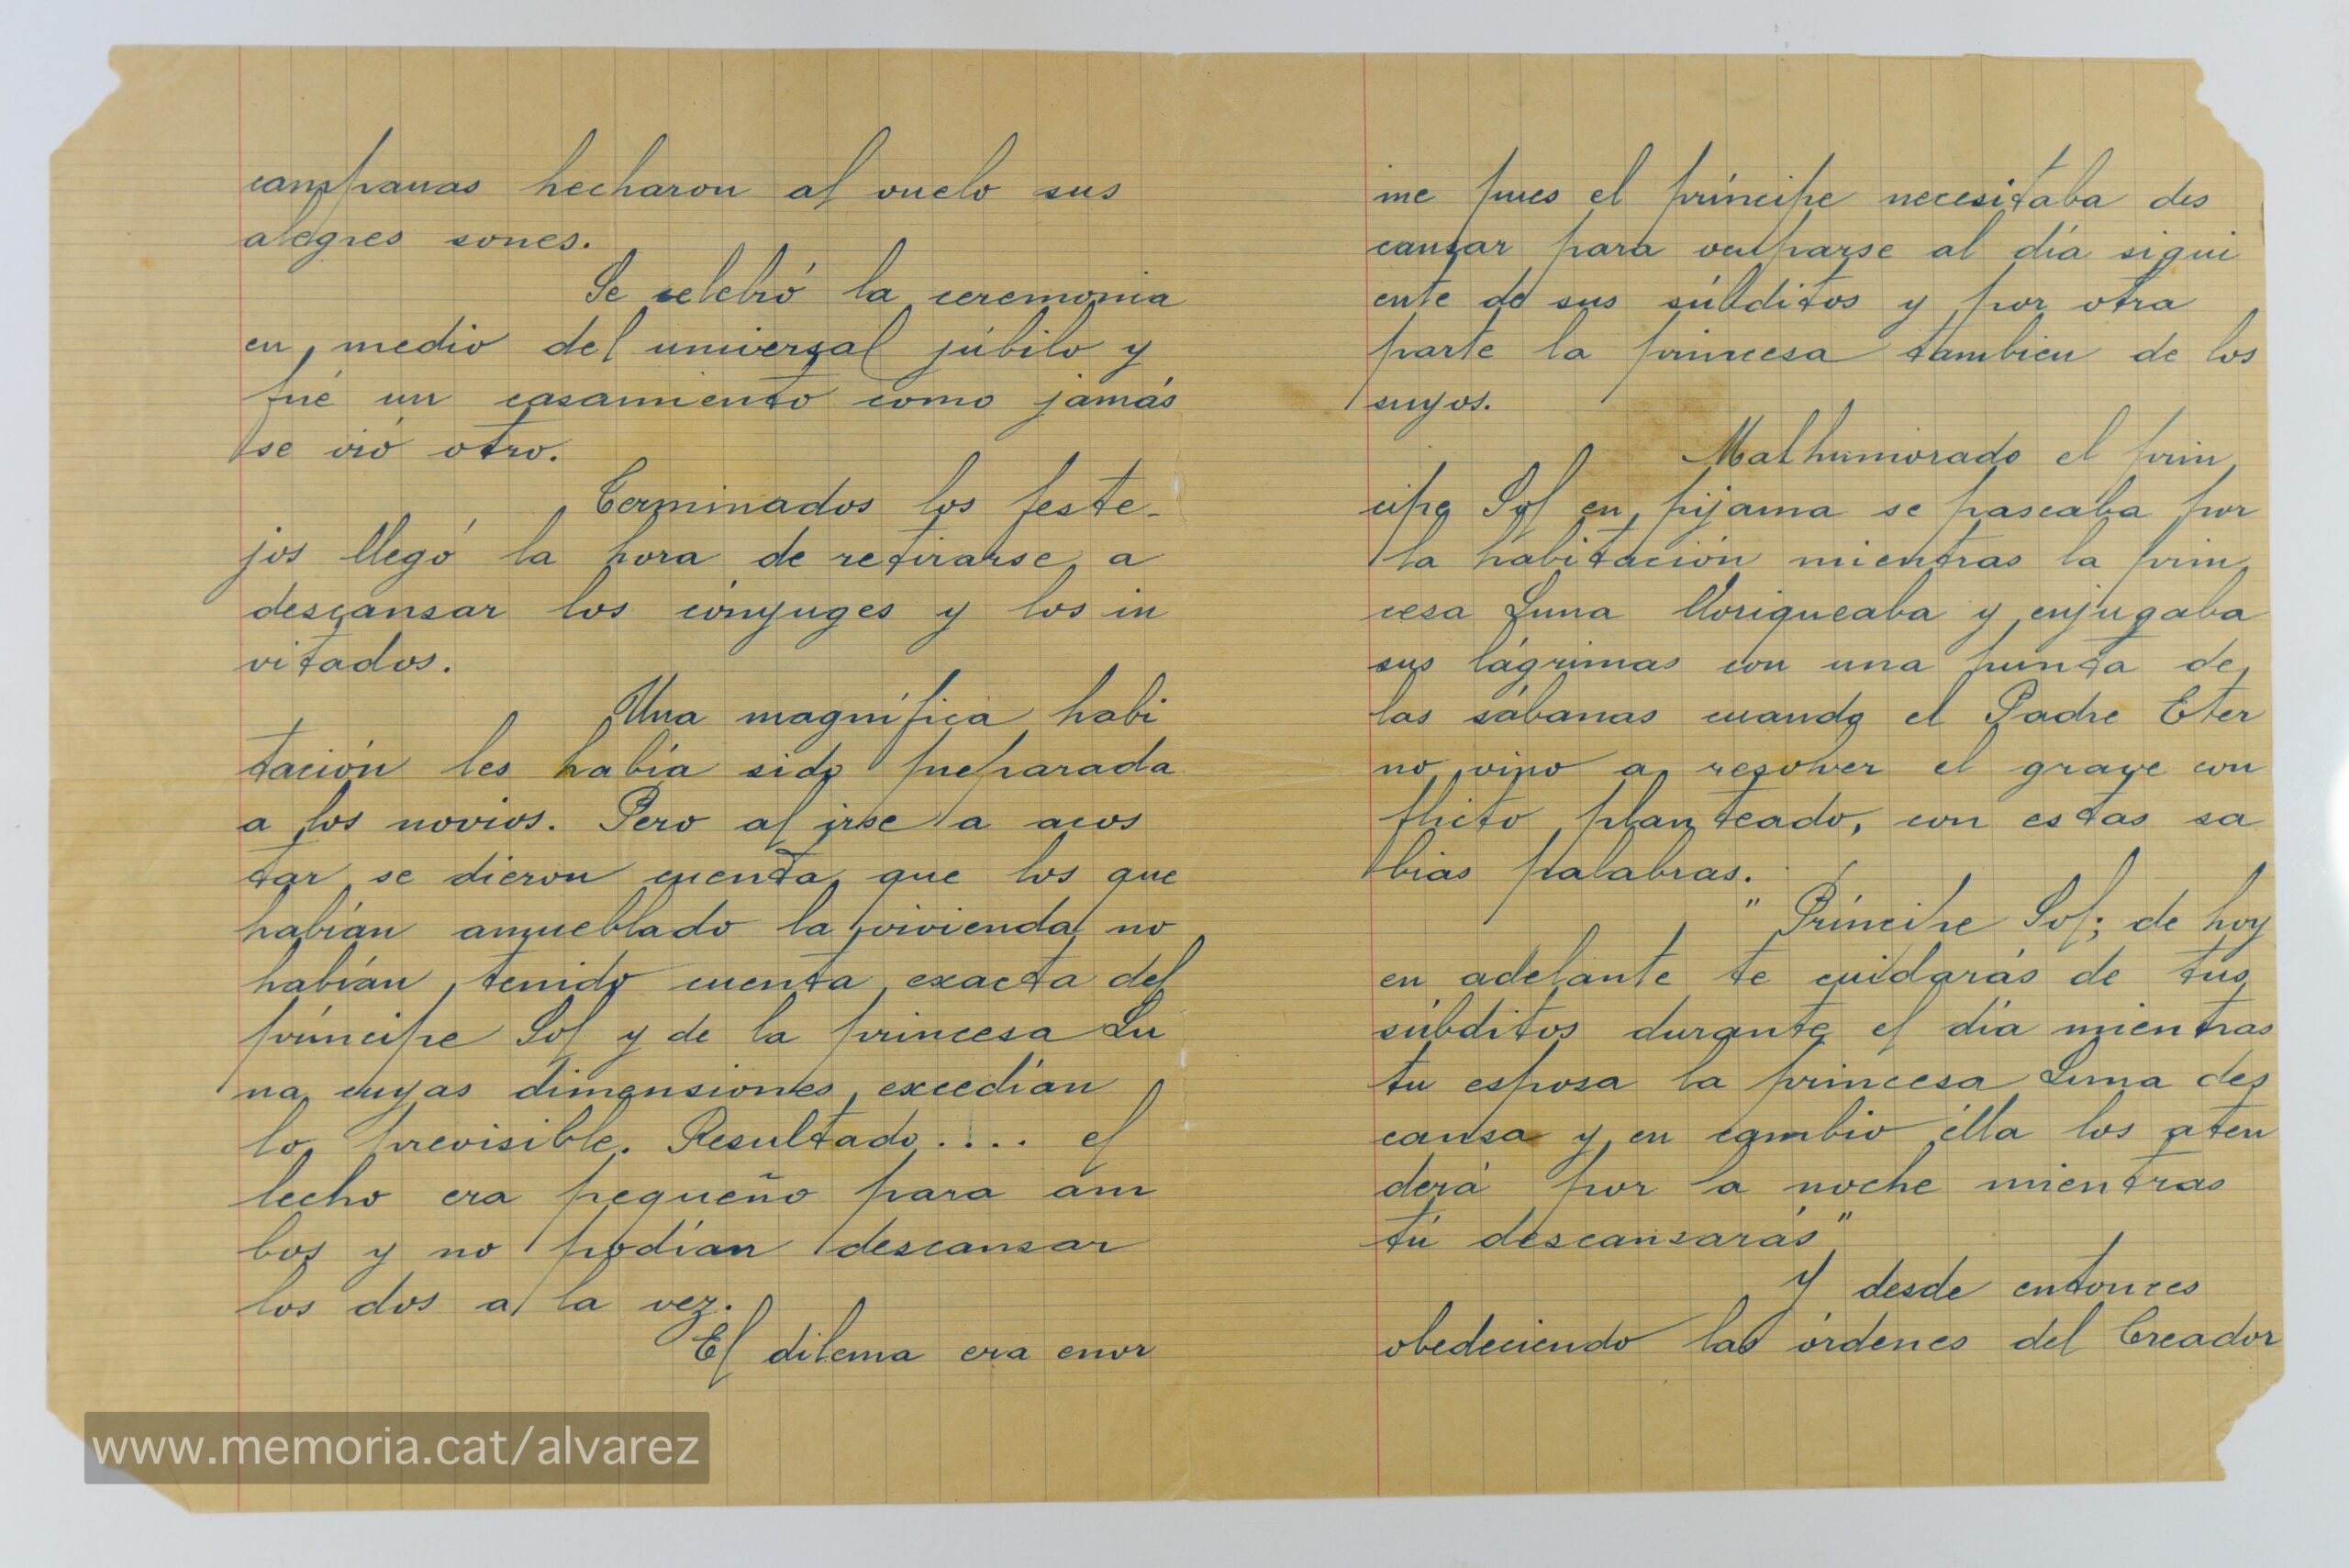 campanas hecharon al vuelo sus
alegres sones.
Se celebró la ceremonia
en medio del universal júbilo y
fué un casamiento como jamás
se vió otro.
Terminados los feste-
jos llegó la hora de retirarse a
descansar los cónyuges y los in
vitados.
Una magnífica habi
tación les había sido preparada
a los novios. Pero al irse a acos
tar se dieron cuenta que los que
habían amueblado la vivienda no
habían tenido cuenta exacta del
príncipe Sol y de la princesa Lu
na cuyas dimensiones excedían
lo previsible. Resultado.... el
lecho era pequeño para am
bos y no podían descansar
los dos a la vez.
El dilema era enor
me pues el príncipe necesitaba des
cansar para ocuparse al día sigui
ente de sus súbditos y por otra
parte la princesa tambien de los
suyos.
Malhumorado el prín
cipe Sol en pijama se paseaba por
la habitación mientras la prin
cesa Luna lloriqueaba y enjugaba
sus lágrimas con una punta de
las sábanas cuando el Padre Eter
no vino a resolver el grave con
flicto planteado, con estas sa
bias palabras.
"Príncipe Sol; de hoy
en adelante te cuidarás de tus
súbditos durante el día mientras
tu esposa la princesa Luna des
cansa y en cambio élla los aten
derá por la noche mientras
tú descansarás"
Y desde entonces
obedeciendo las órdenes del Creador
www.memoria.cat/alvarez